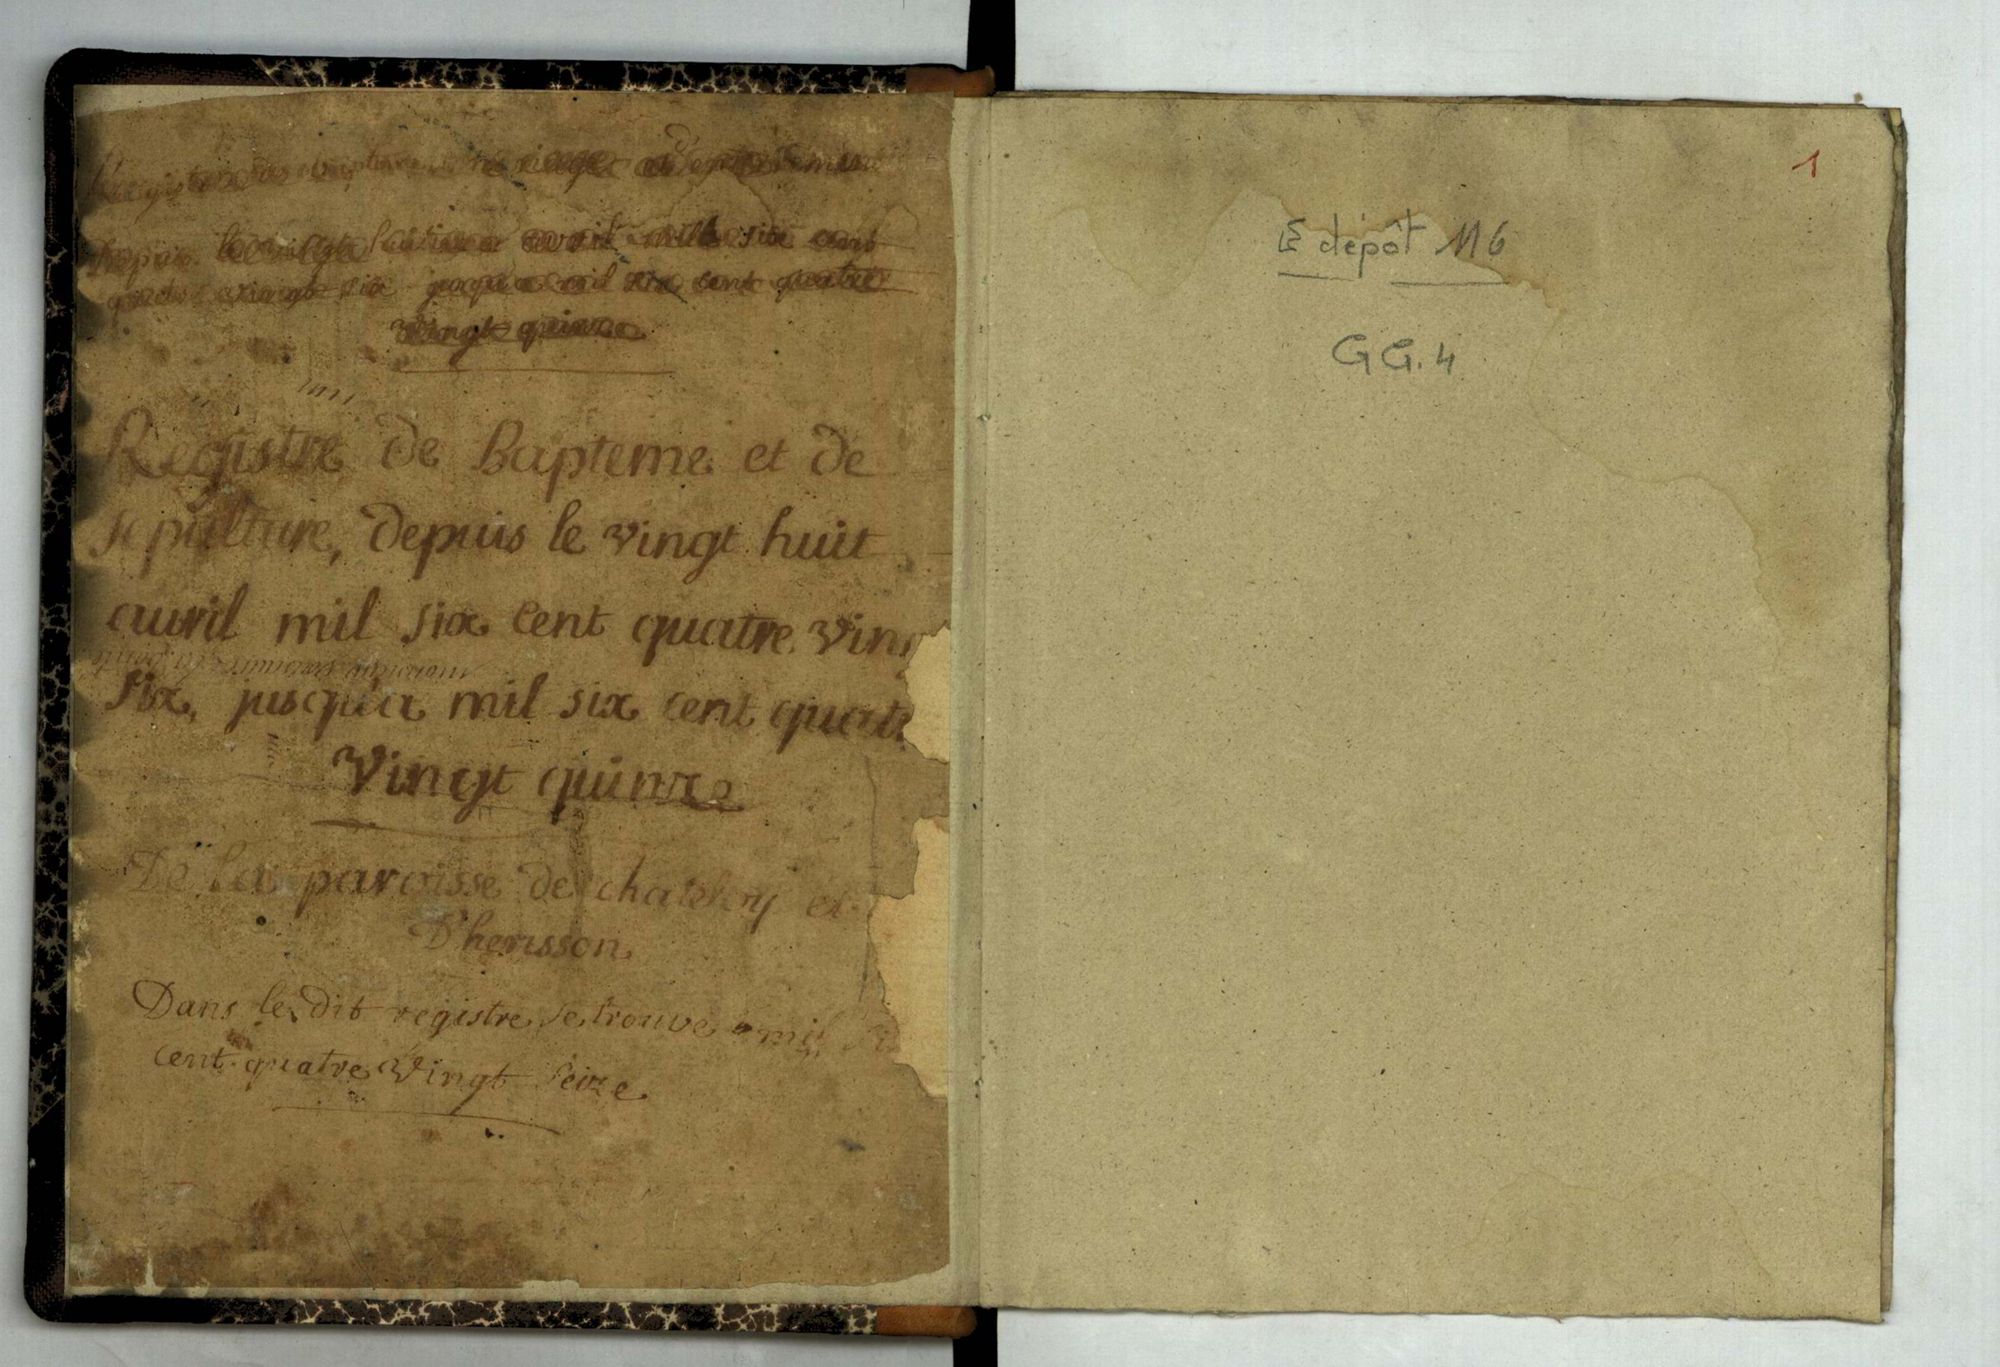 Registre des mariages et
Depuis le vingt huit avril mille six cent
quatre vingt six jusqua mil six cent quatre
vingt quinze
Registre de Bapteme et de
sepulture, depuis le vingt huit
auril mil six cent quatre ving
six, jusqu'a mil six cent quat
vingt quinze
De la paroisse de chateloy et
D'herisson
Dans le dit registre se trouve mil
cent quatre vingt seize
1
E dépôt 116
GG.4